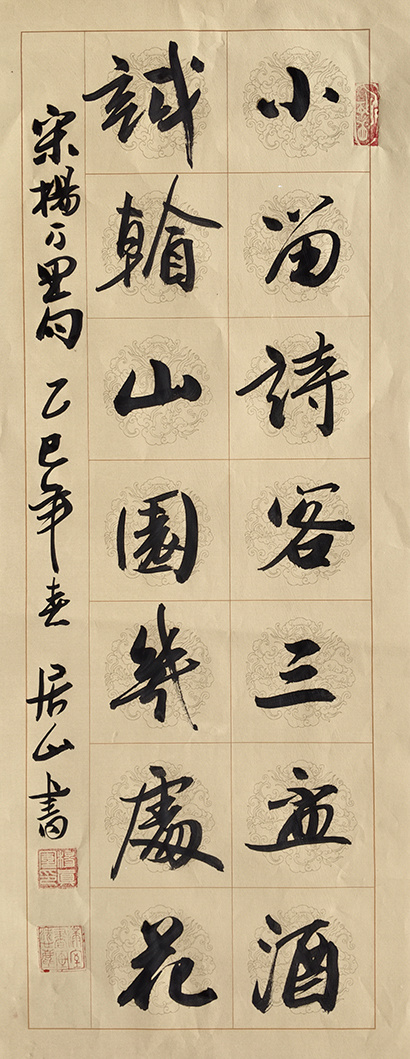 小留詩客三盃酒
試輸山園幾處花
宋楊万里句 乙巳年春 居山書